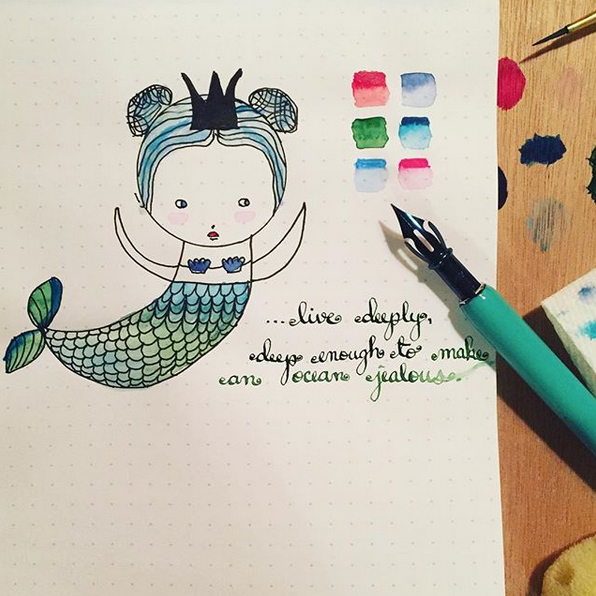 ...live deeply,
deep enough to make
an ocean jealous.